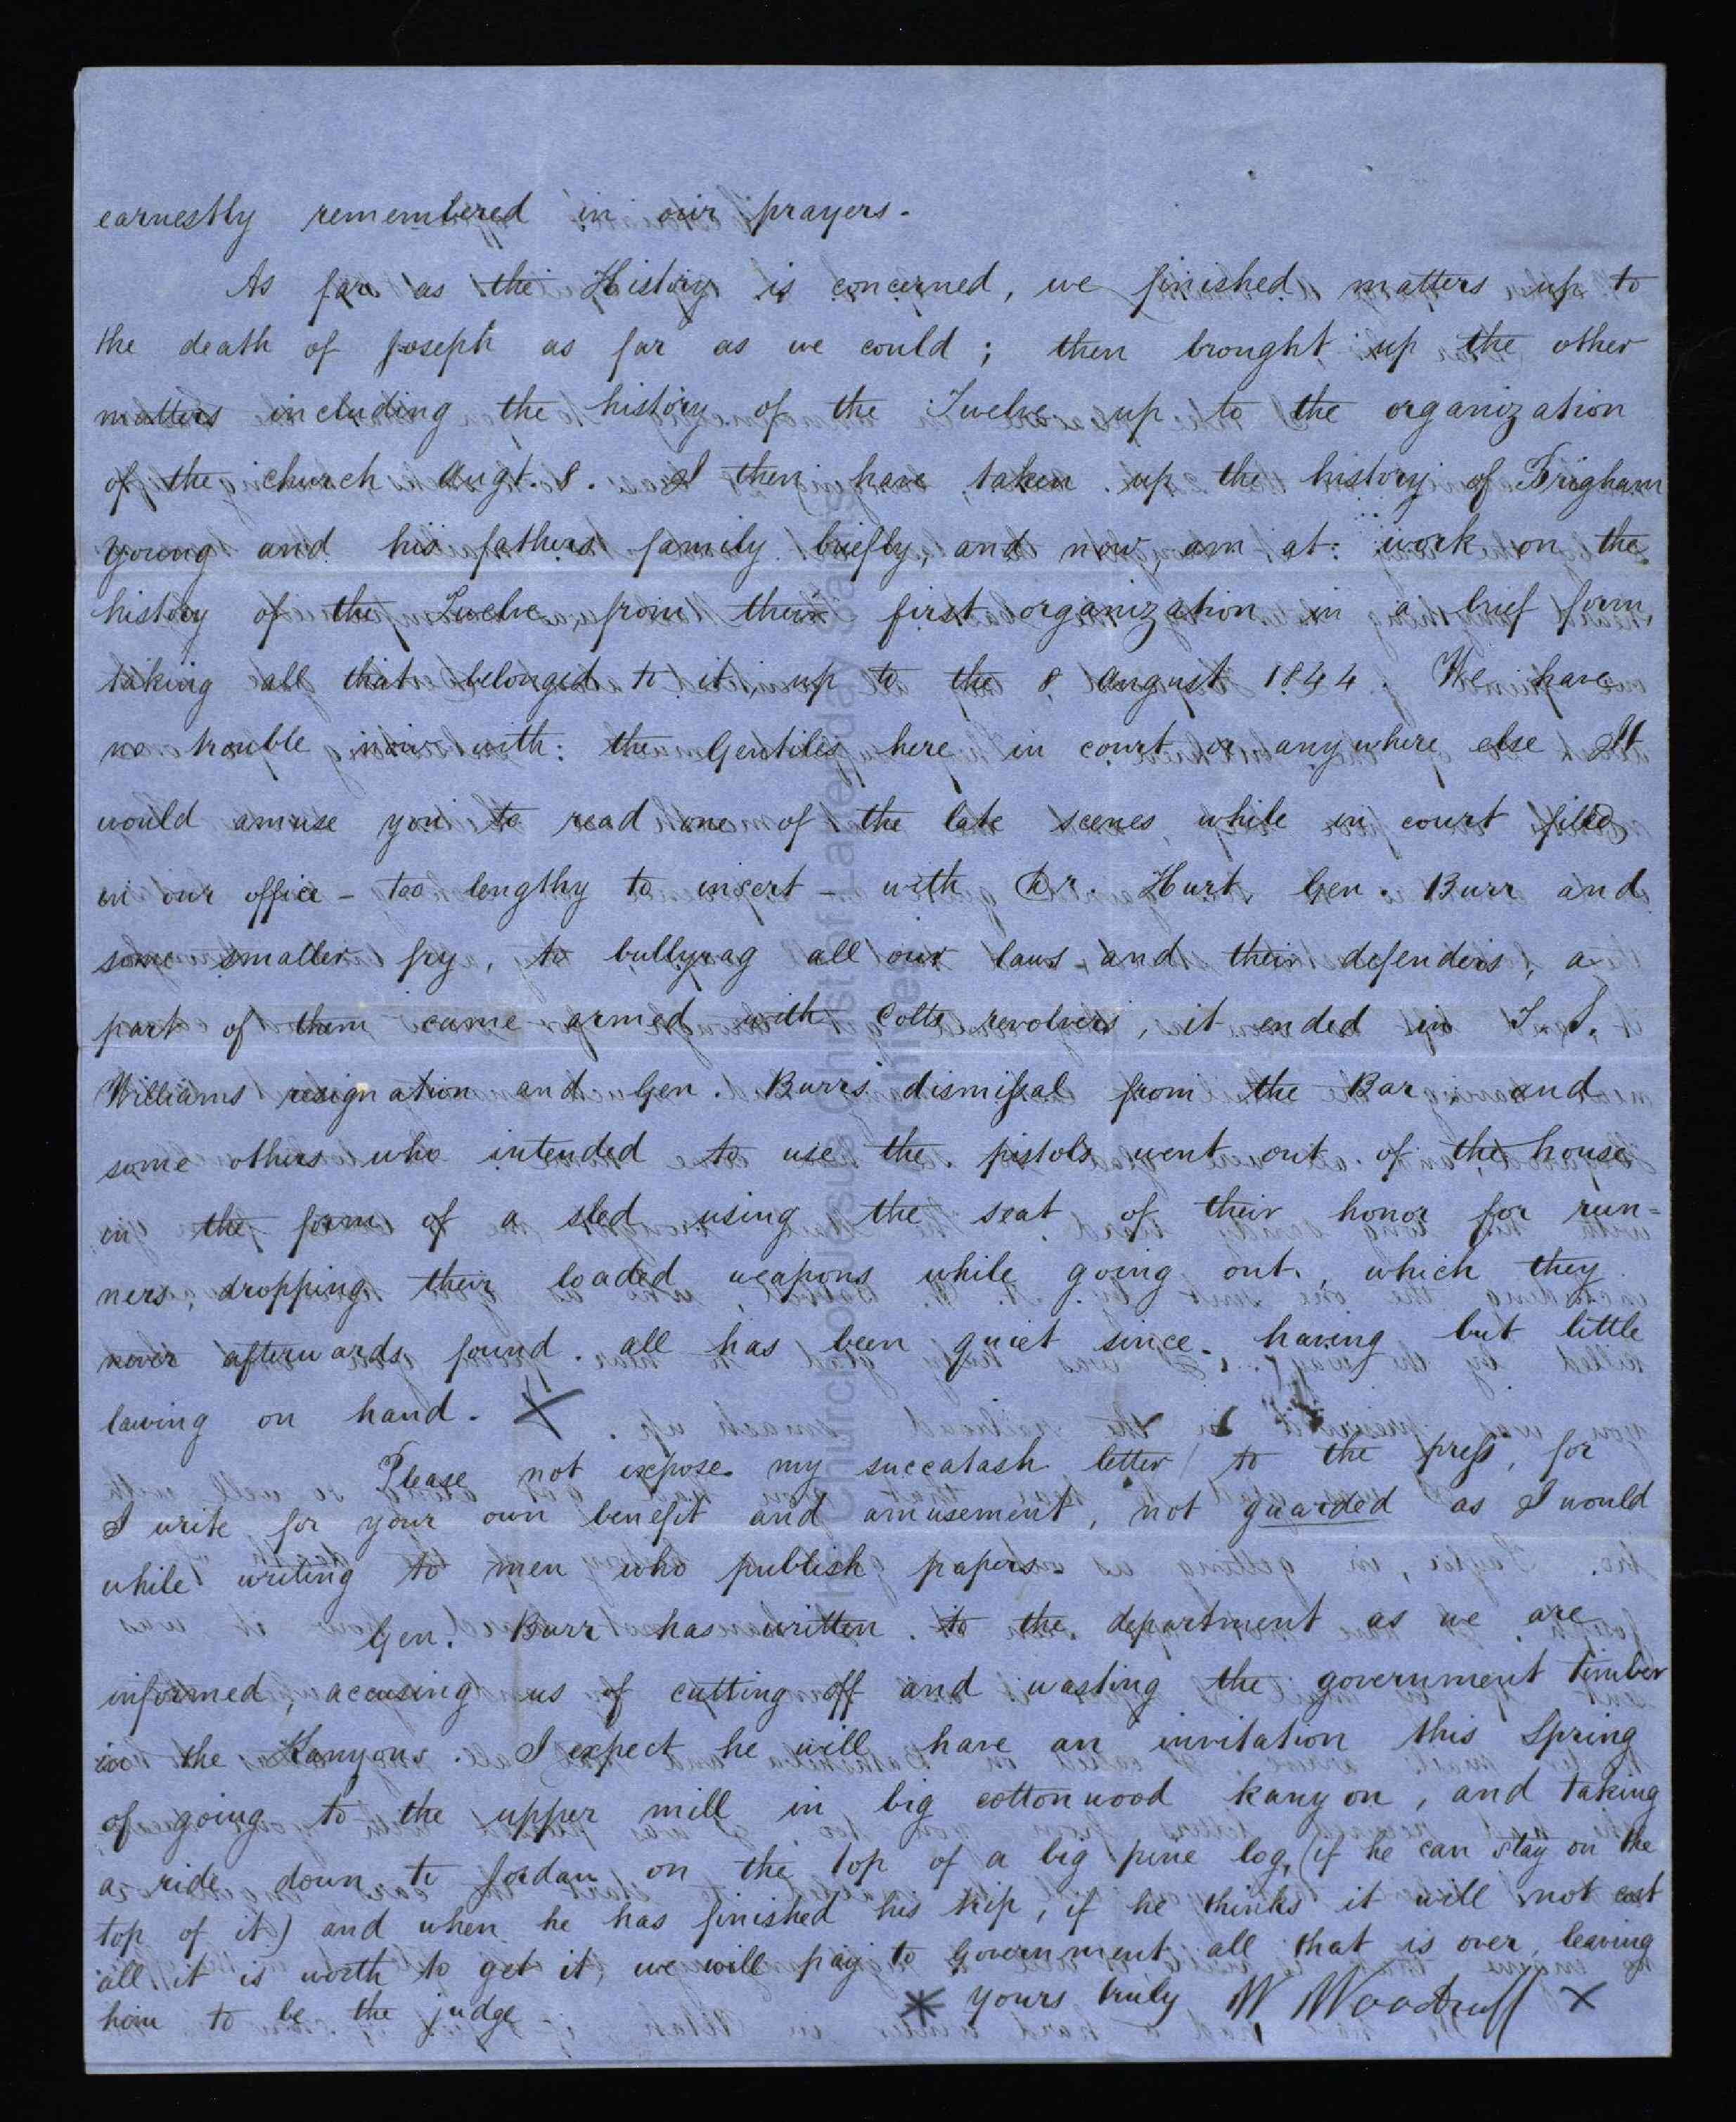 earnestly remembered in our prayers.
As far as the History is concerned, we finished matters up to
the death of Joseph as far as we could; then brought up the other
matters including the history of the Twelve up to the organization
of the church Augt. 8. I then have taken up the history of Brigham
Young and his fathers family briefly, and now am at work on the
history of the Twelve from their first organization in a brief form,
taking all that belonged to it, up to the 8 August 1844. We have
no trouble now with the Gentiles here in court or anywhere else It
would amuse you to read one of the late scenes, while in court filled
in our office - too lengthy to insert - with Dr. Hurt, Gen. Burr and
some smaller fry, to bullyrag all our laws and their defenders, a
part of them came armed with Colts revolvers, it ended in T. S.
Williams resignation and Gen. Burrs dismissal from the Bar, and
some others who intended to use the pistols went out of the house
in the form of a sled using the seat of their honor for run=
ners, dropping their loaded weapons while going out, which they
never afterwards found. all has been quiet since, having but little
lawing on hand. X
Please not expose my succatash letter to the press, for
I write for your own benefit and amusement, not guarded as I would
while writing to men who publish papers.
Gen. Burr has written to the department as we are
informed, accusing us of cutting off and wasting the government timber
in the Kanyons. I expect he will have an invitation this Spring
of going to the upper mill in big cottonwood kanyon, and taking
a ride down to Jordan on the top of a big pine log, (if he can stay on the
top of it) and when he has finished his trip, if he thinks it will not cost
all it is worth to get it, we will pay to Government all that is over, leaving
him to be the judge
* Yours truly W Woodruff X
The Church of Jesus Christ of Latter-day Saints
Archives